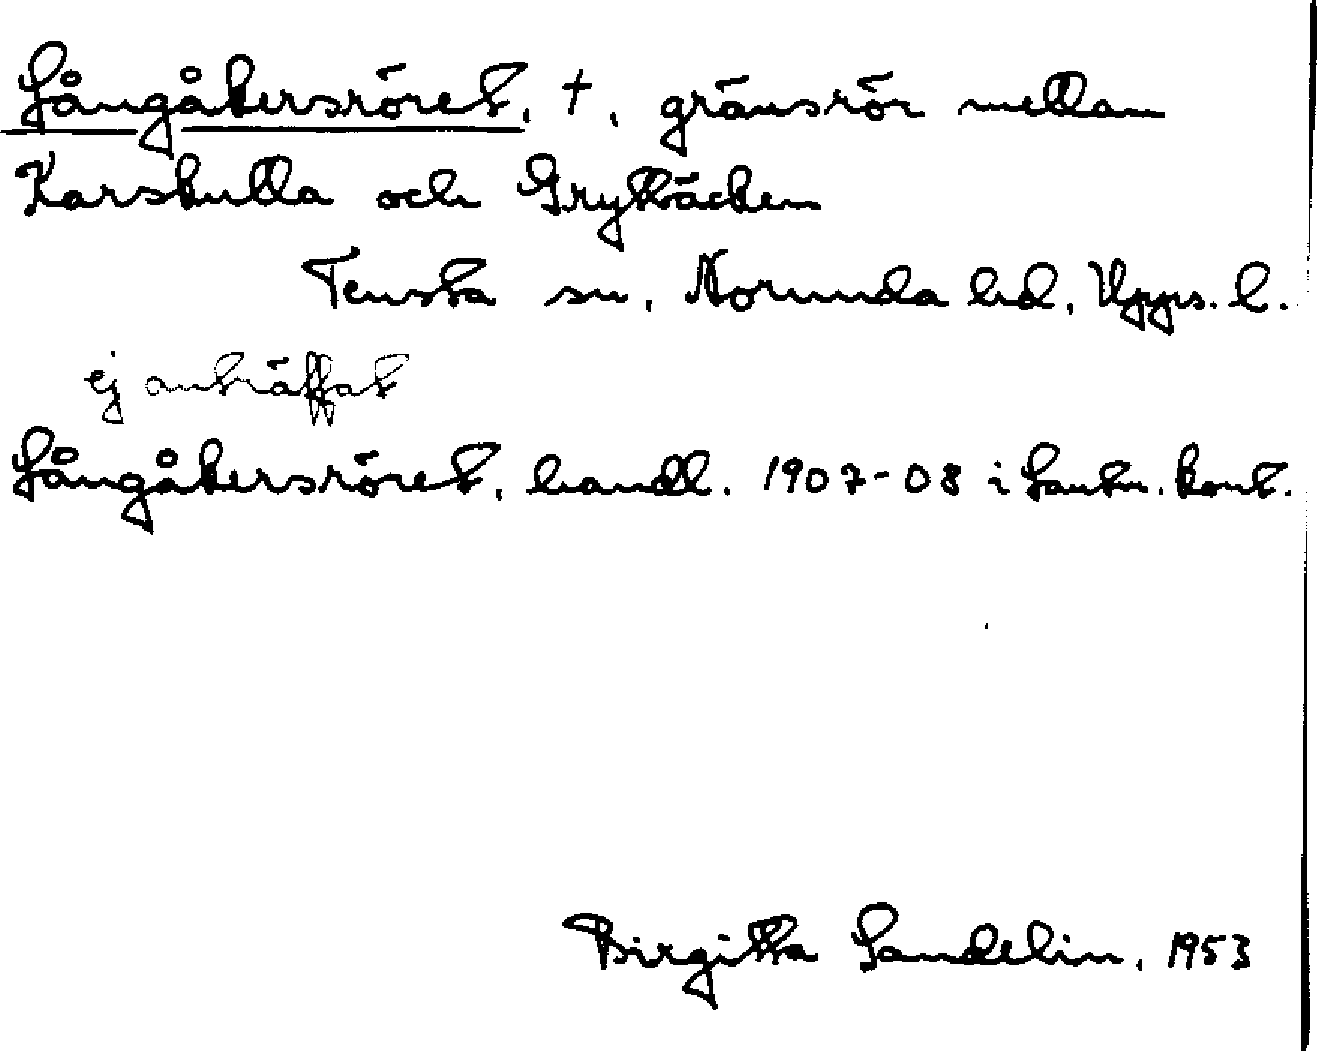 Långåkersröret, †, gränsrör mellan
Karskulla och Gryttäcken
Tensta sn, Norunda hd, Upps. l.
ej anträffat
Långåkersröret, handl. 1907-08 i Lantm. kont.
Birgitta Sandelin, 1953